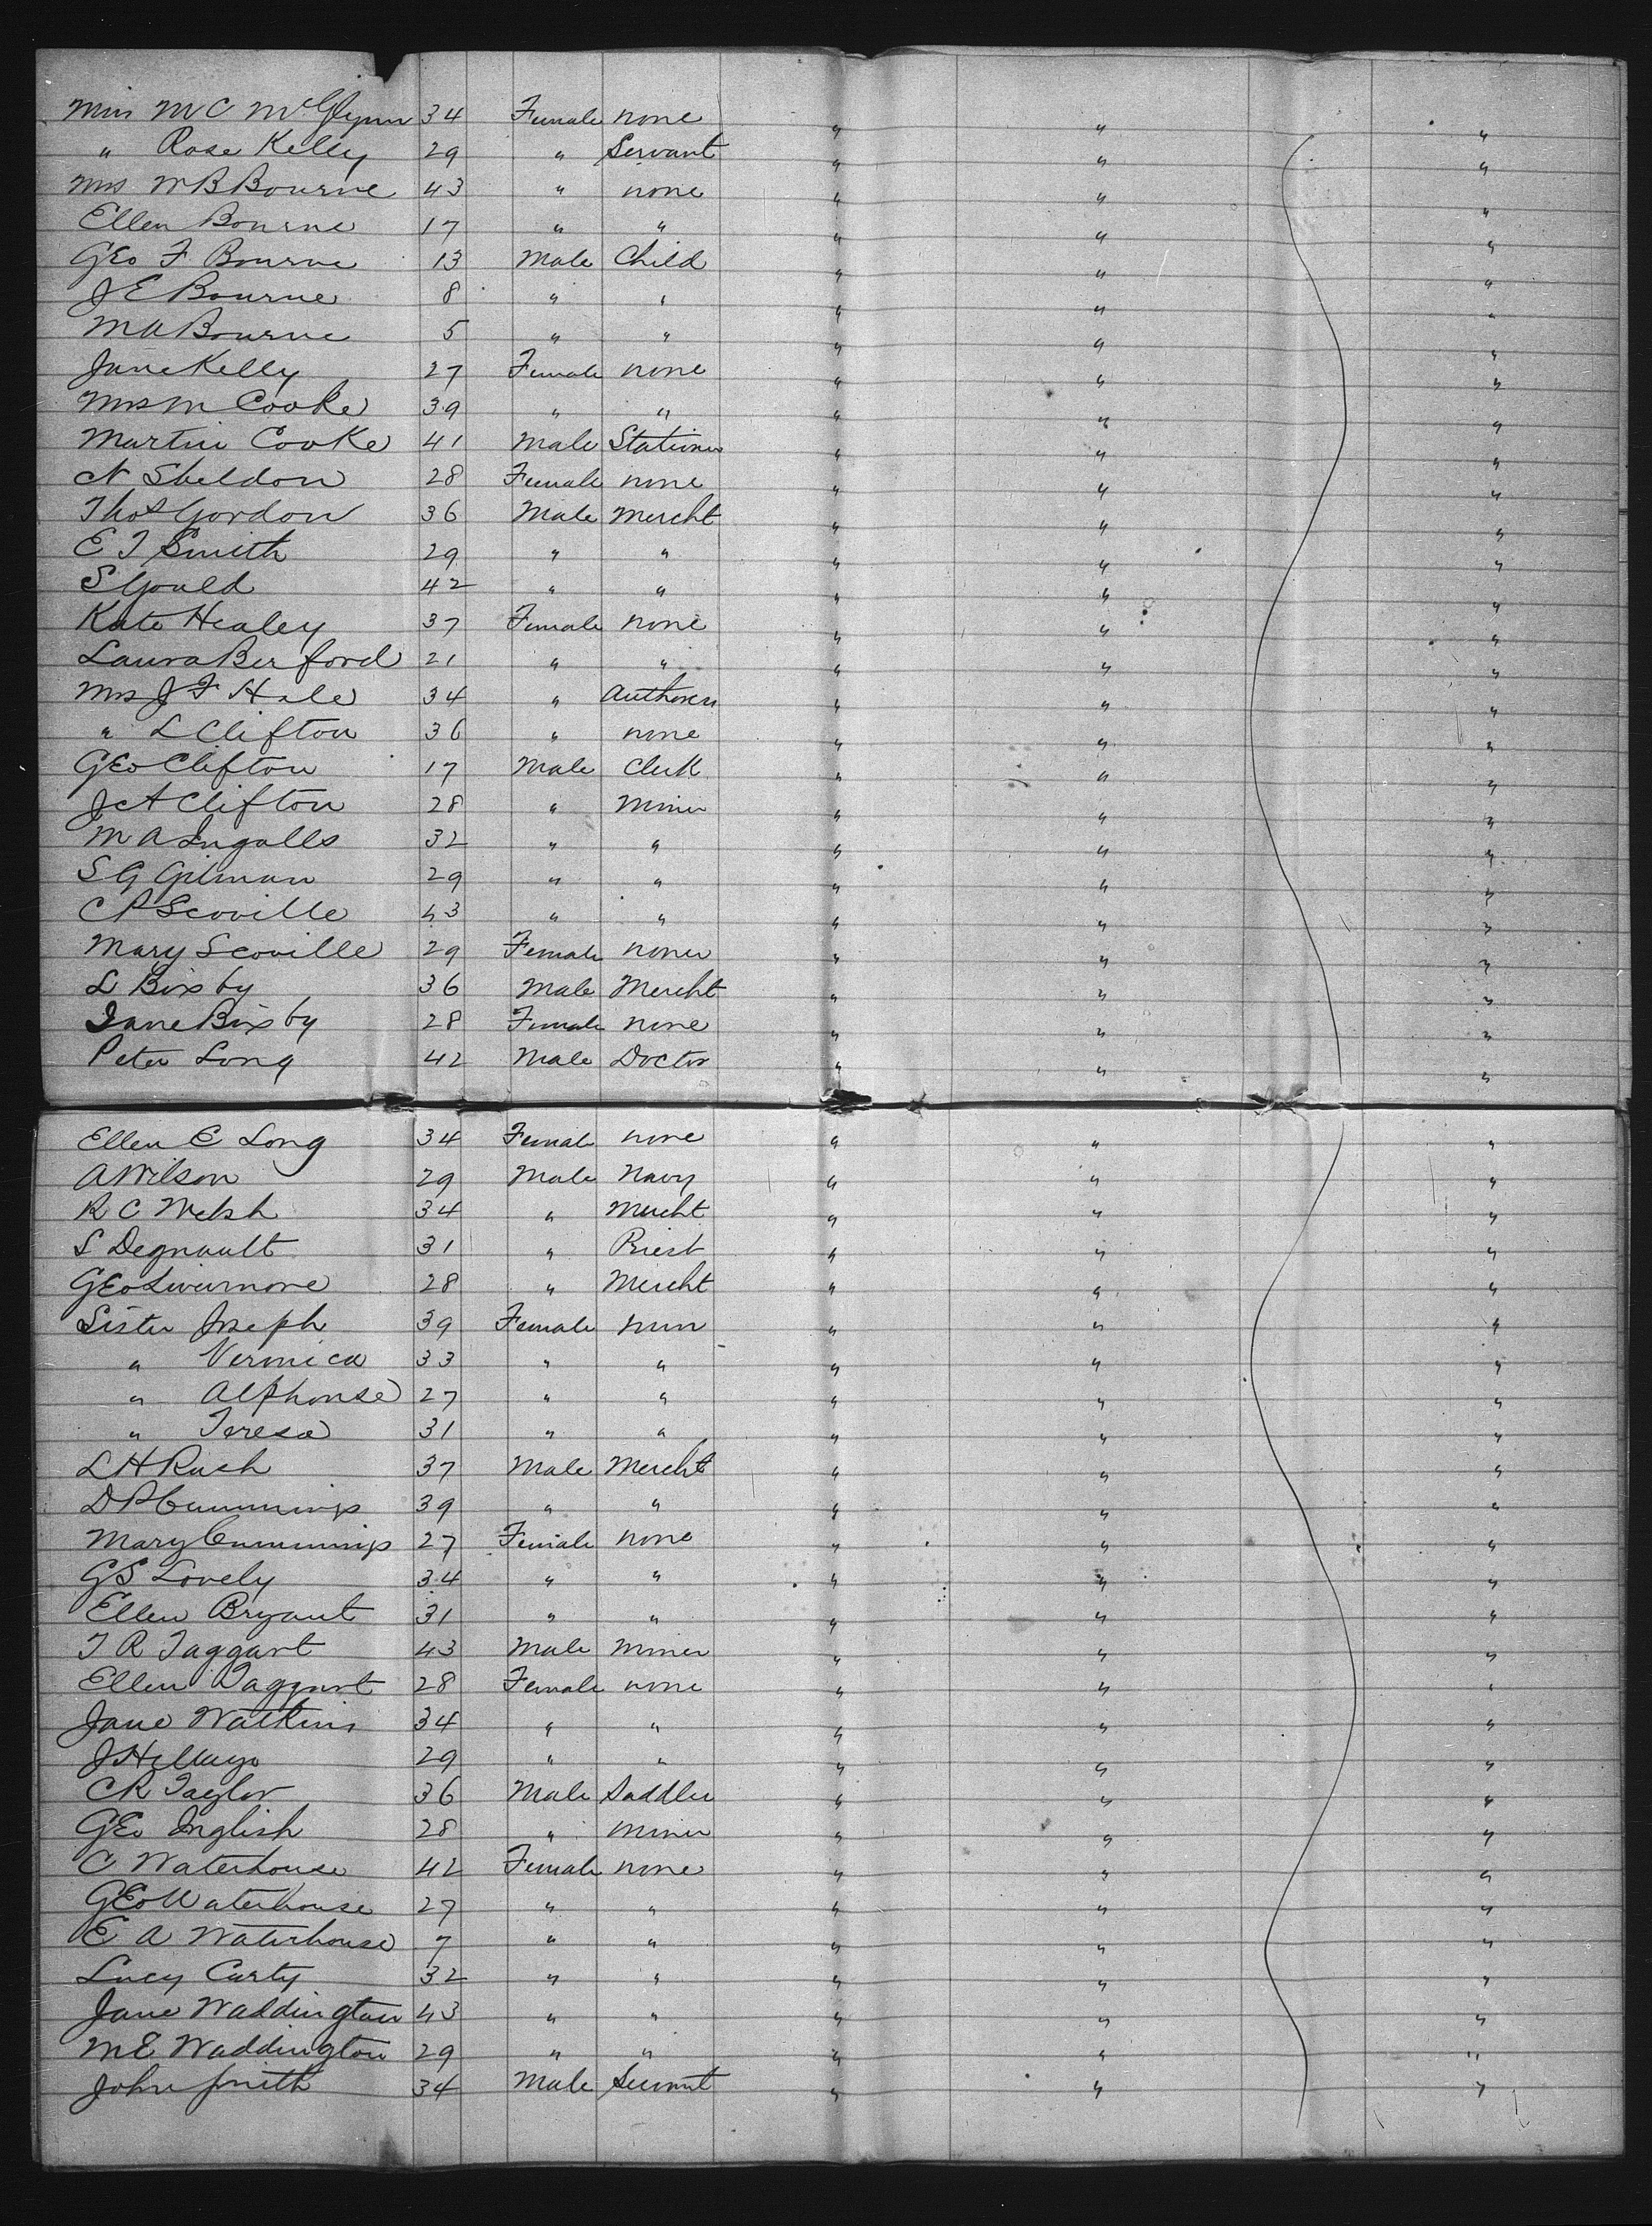 Miss M C McGlynn 34 Female none " " "
" Rose Kelly 29 " Servant " " "
Mrs W B Bourne 43 " none " " "
Ellen Bourne 17 " " " " "
Geo F Bourne 13 Male Child " " "
J E Bourne 8 " " " " "
M A Bourne 5 " " " " "
Jane Kelly 27 Female none " " "
Mrs M Cooke 39 " " " " "
Martin Cooke 41 Male Stationer " " "
N Sheldon 28 Female none " " "
Thos Gordon 36 Male Mercht " " "
E T Smith 29 " " " " "
S Gould 42 " " " " "
Kate Healey 37 Female none " " "
Laura Berford 21 " " " " "
Mrs J F Hale 34 " Authoress " " "
" L Clifton 36 " none " " "
Geo Clifton 17 Male Clerk " " "
J A Clifton 28 " Miner " " "
M A Ingalls 32 " " " " "
S G Gilman 29 " " " " "
C P Scoville 43 " " " " "
Mary Scoville 29 Female none " " "
L Bixby 36 Male Mercht " " "
Jane Bixby 28 Female none " " "
Peter Long 42 Male Doctor " " "
Ellen E Long 34 Female none " " "
A Wilson 29 Male Navy " " "
R C Welsh 34 " Mercht " " "
S Degnault 31 " Priest " " "
Geo Livermore 28 " Mercht " " "
Sister Joseph 39 Female nun " " "
" Veronica 33 " " " " "
" Alphonse 27 " " " " "
" Teresa 31 " " " " "
L H Rush 37 Male Mercht " " "
D P Cummings 39 " " " " "
Mary Cummings 27 Female none " " "
G S Lovely 34 " " " " "
Ellen Bryant 31 " " " " "
T R Taggart 43 Male Miner " " "
Ellen Taggart 28 Female none " " "
Jane Watkins 34 " " " " "
29 " " " " "
C R Taylor 36 Male Saddler " " "
Geo Inglish 28 " Miner " " "
C Waterhouse 42 Female none " " "
Geo Waterhouse 27 " " " " "
E A Waterhouse 7 " " " " "
Lucy Carty 32 " " " " "
Jane Waddington 43 " " " " "
M E Waddington 29 " " " " "
John Smith 34 Male Servant " " "